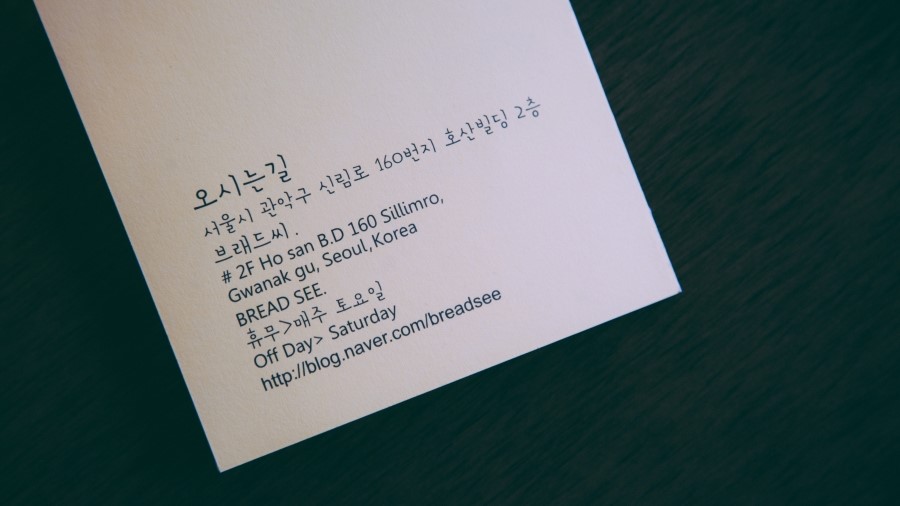 오시는길
서울시 관악구 신림로 160번지 호산빌딩 2층
브래드씨 .
# 2F Ho san B.D 160 Sillimro,
Gwanak gu, Seoul,Korea
BREAD SEE.
휴무>매주 토요일
Off Day> Saturday
http://blog.naver.com/breadsee